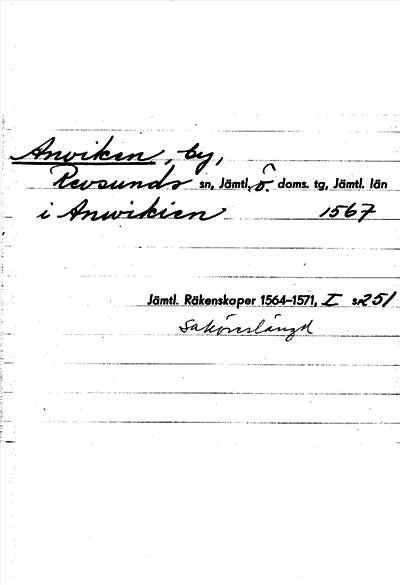 Anviken, by,
Revsunds sn, Jämtl. ö. doms. tg, Jämtl. län
i Anwikien 1567
Jämtl. Räkenskaper 1564–1571, I s. 251
Saköreslängd